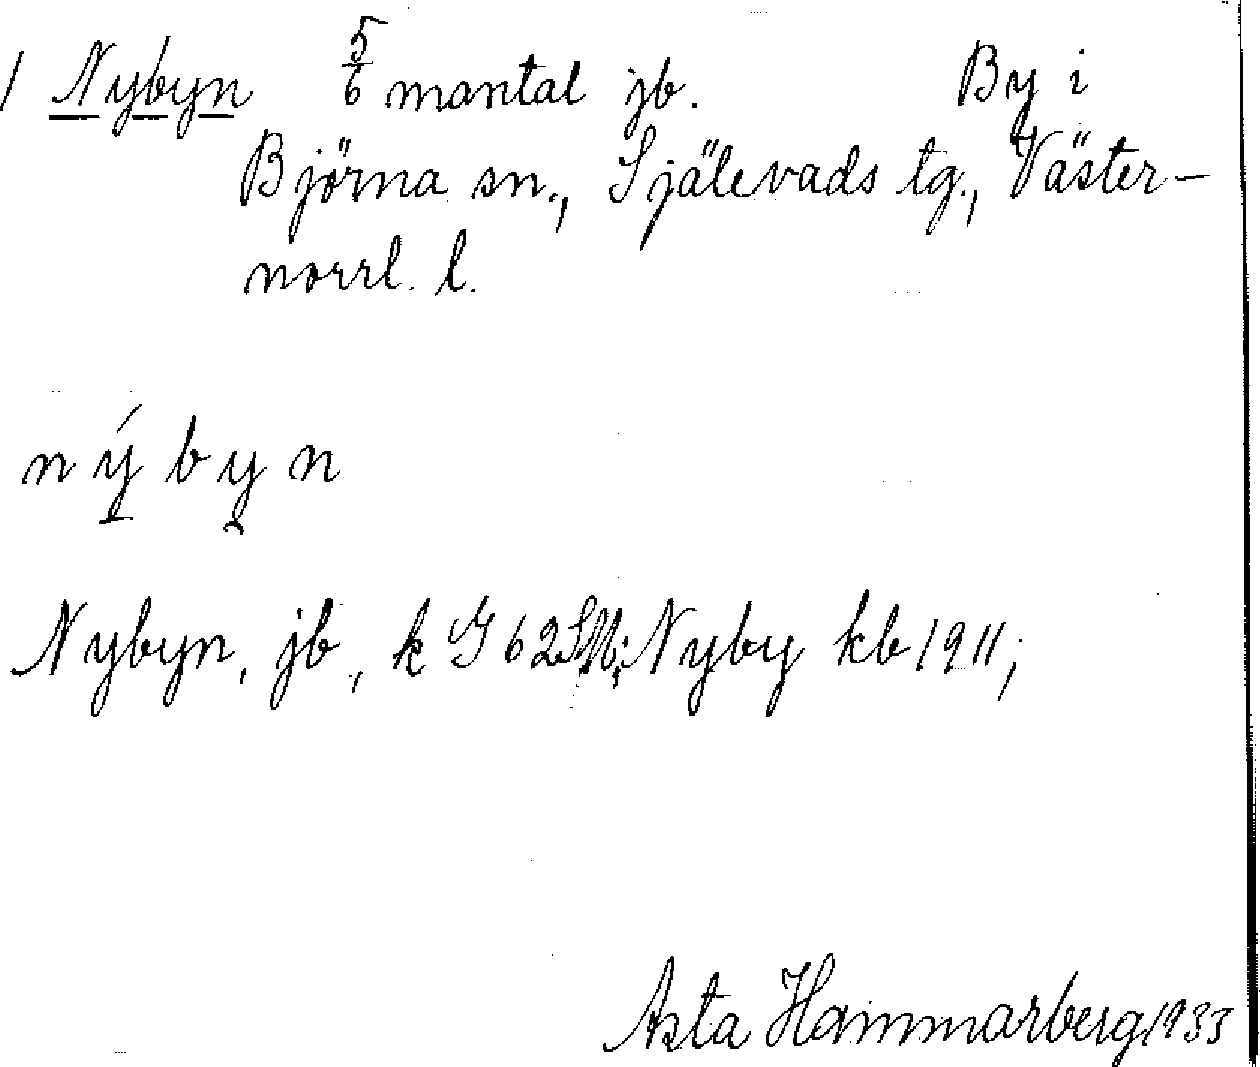 1 Nybyn 5/6 mantal jb. By i
Björna sn., Själevads tg., Väster-
norrl. l.
nýbyn
Nybyn, jb, k G 62 Nyby kb 1911;
Asta Hammarberg 1933